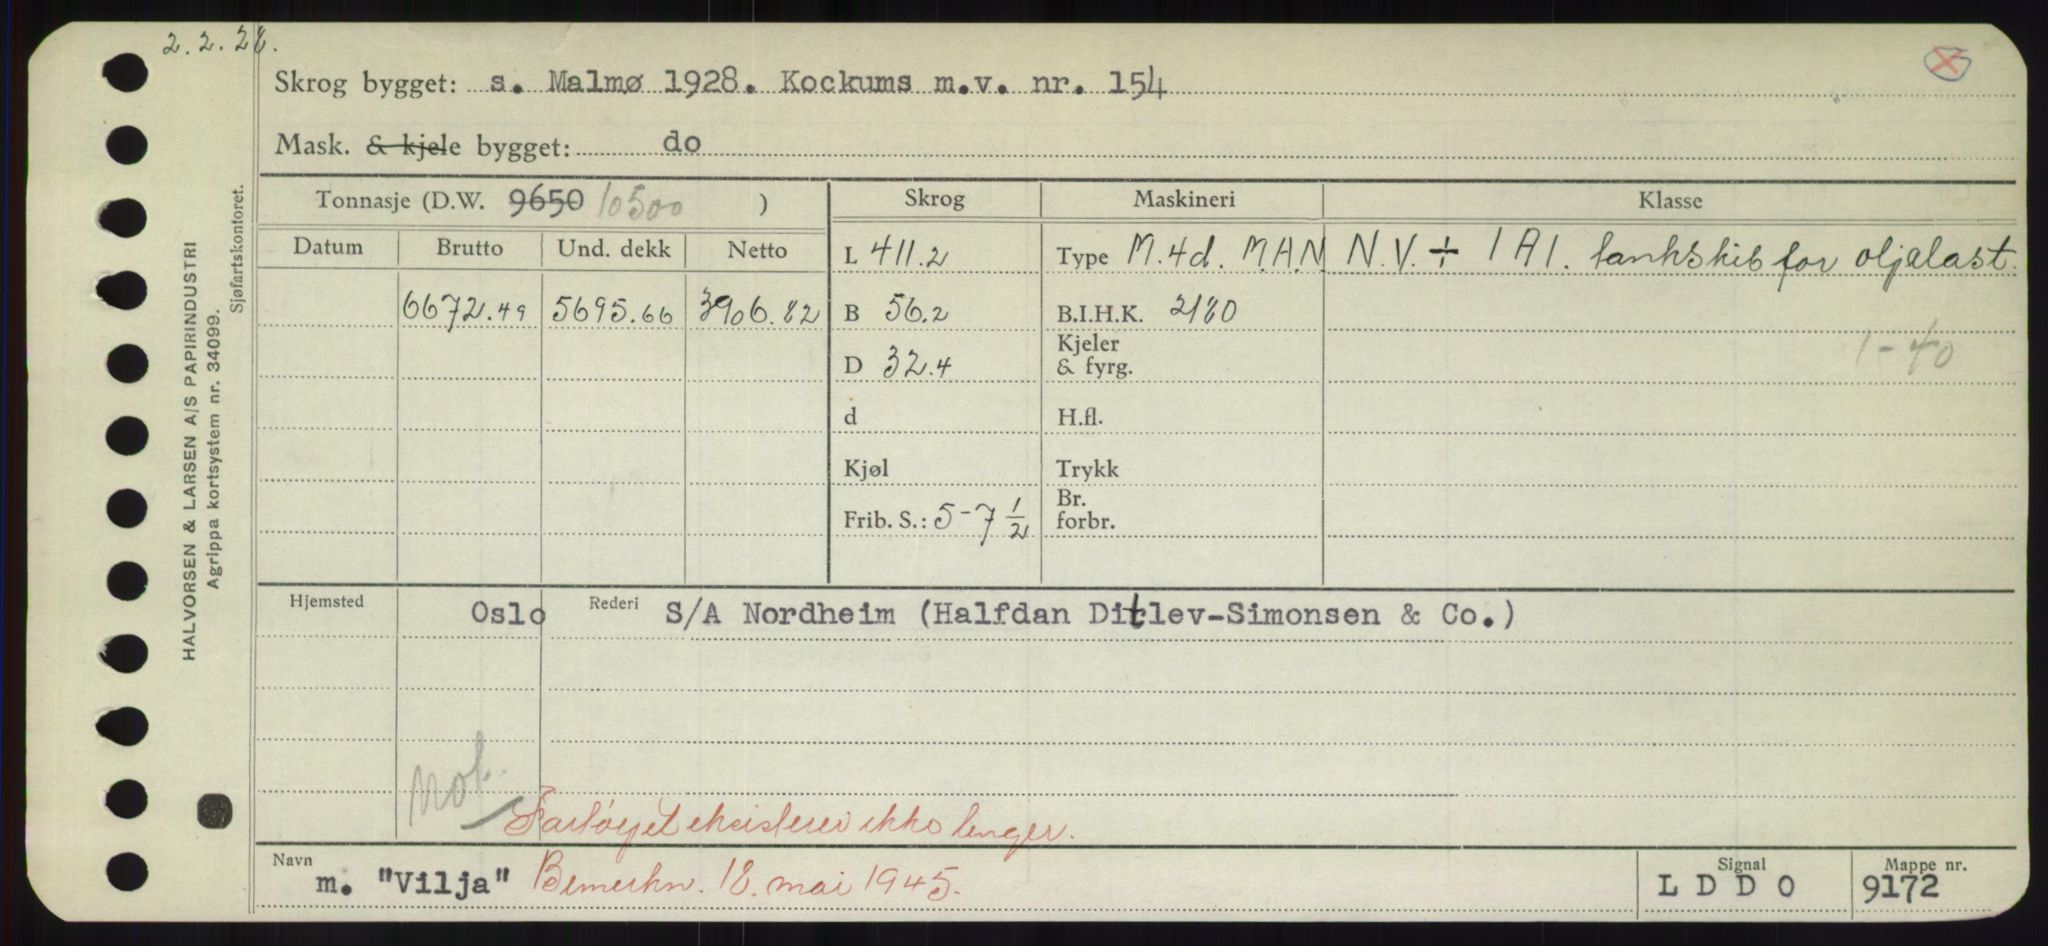 2.2.28.
Skrog bygget: s. Malmø 1928. Kockums m.v. nr. 154
Mask. & kjele bygget: do
Tonnasje (D.W. 9650 10500 )
Skrog Maskineri Klasse
Datum Brutto Und. dekk Netto
L 411.2 Type M.4d. M.A.N N.V. ÷ 1A1. tankskib for oljelast.
6672.49 5695.66 3906.82 B 56.2 B.I.H.K. 2180
D 32.4 Kjeler & fyrg. 1-40
d H.fl.
Kjøl Trykk
Frib. S.: 5-7 1/2 Br. forbr.
Hjemsted Oslo Rederi S/A Nordheim (Halfdan Ditlev-Simonsen & Co.)
Fartøyet eksisterer ikke lenger.
Navn m. "Vilja" Bemerkn. 18. mai 1945.
Signal L D D O
Mappe nr. 9172
HALVORSEN & LARSEN A/S PAPIRINDUSTRI
Agrippa kortsystem nr. 34099.
Sjøfartskontoret.